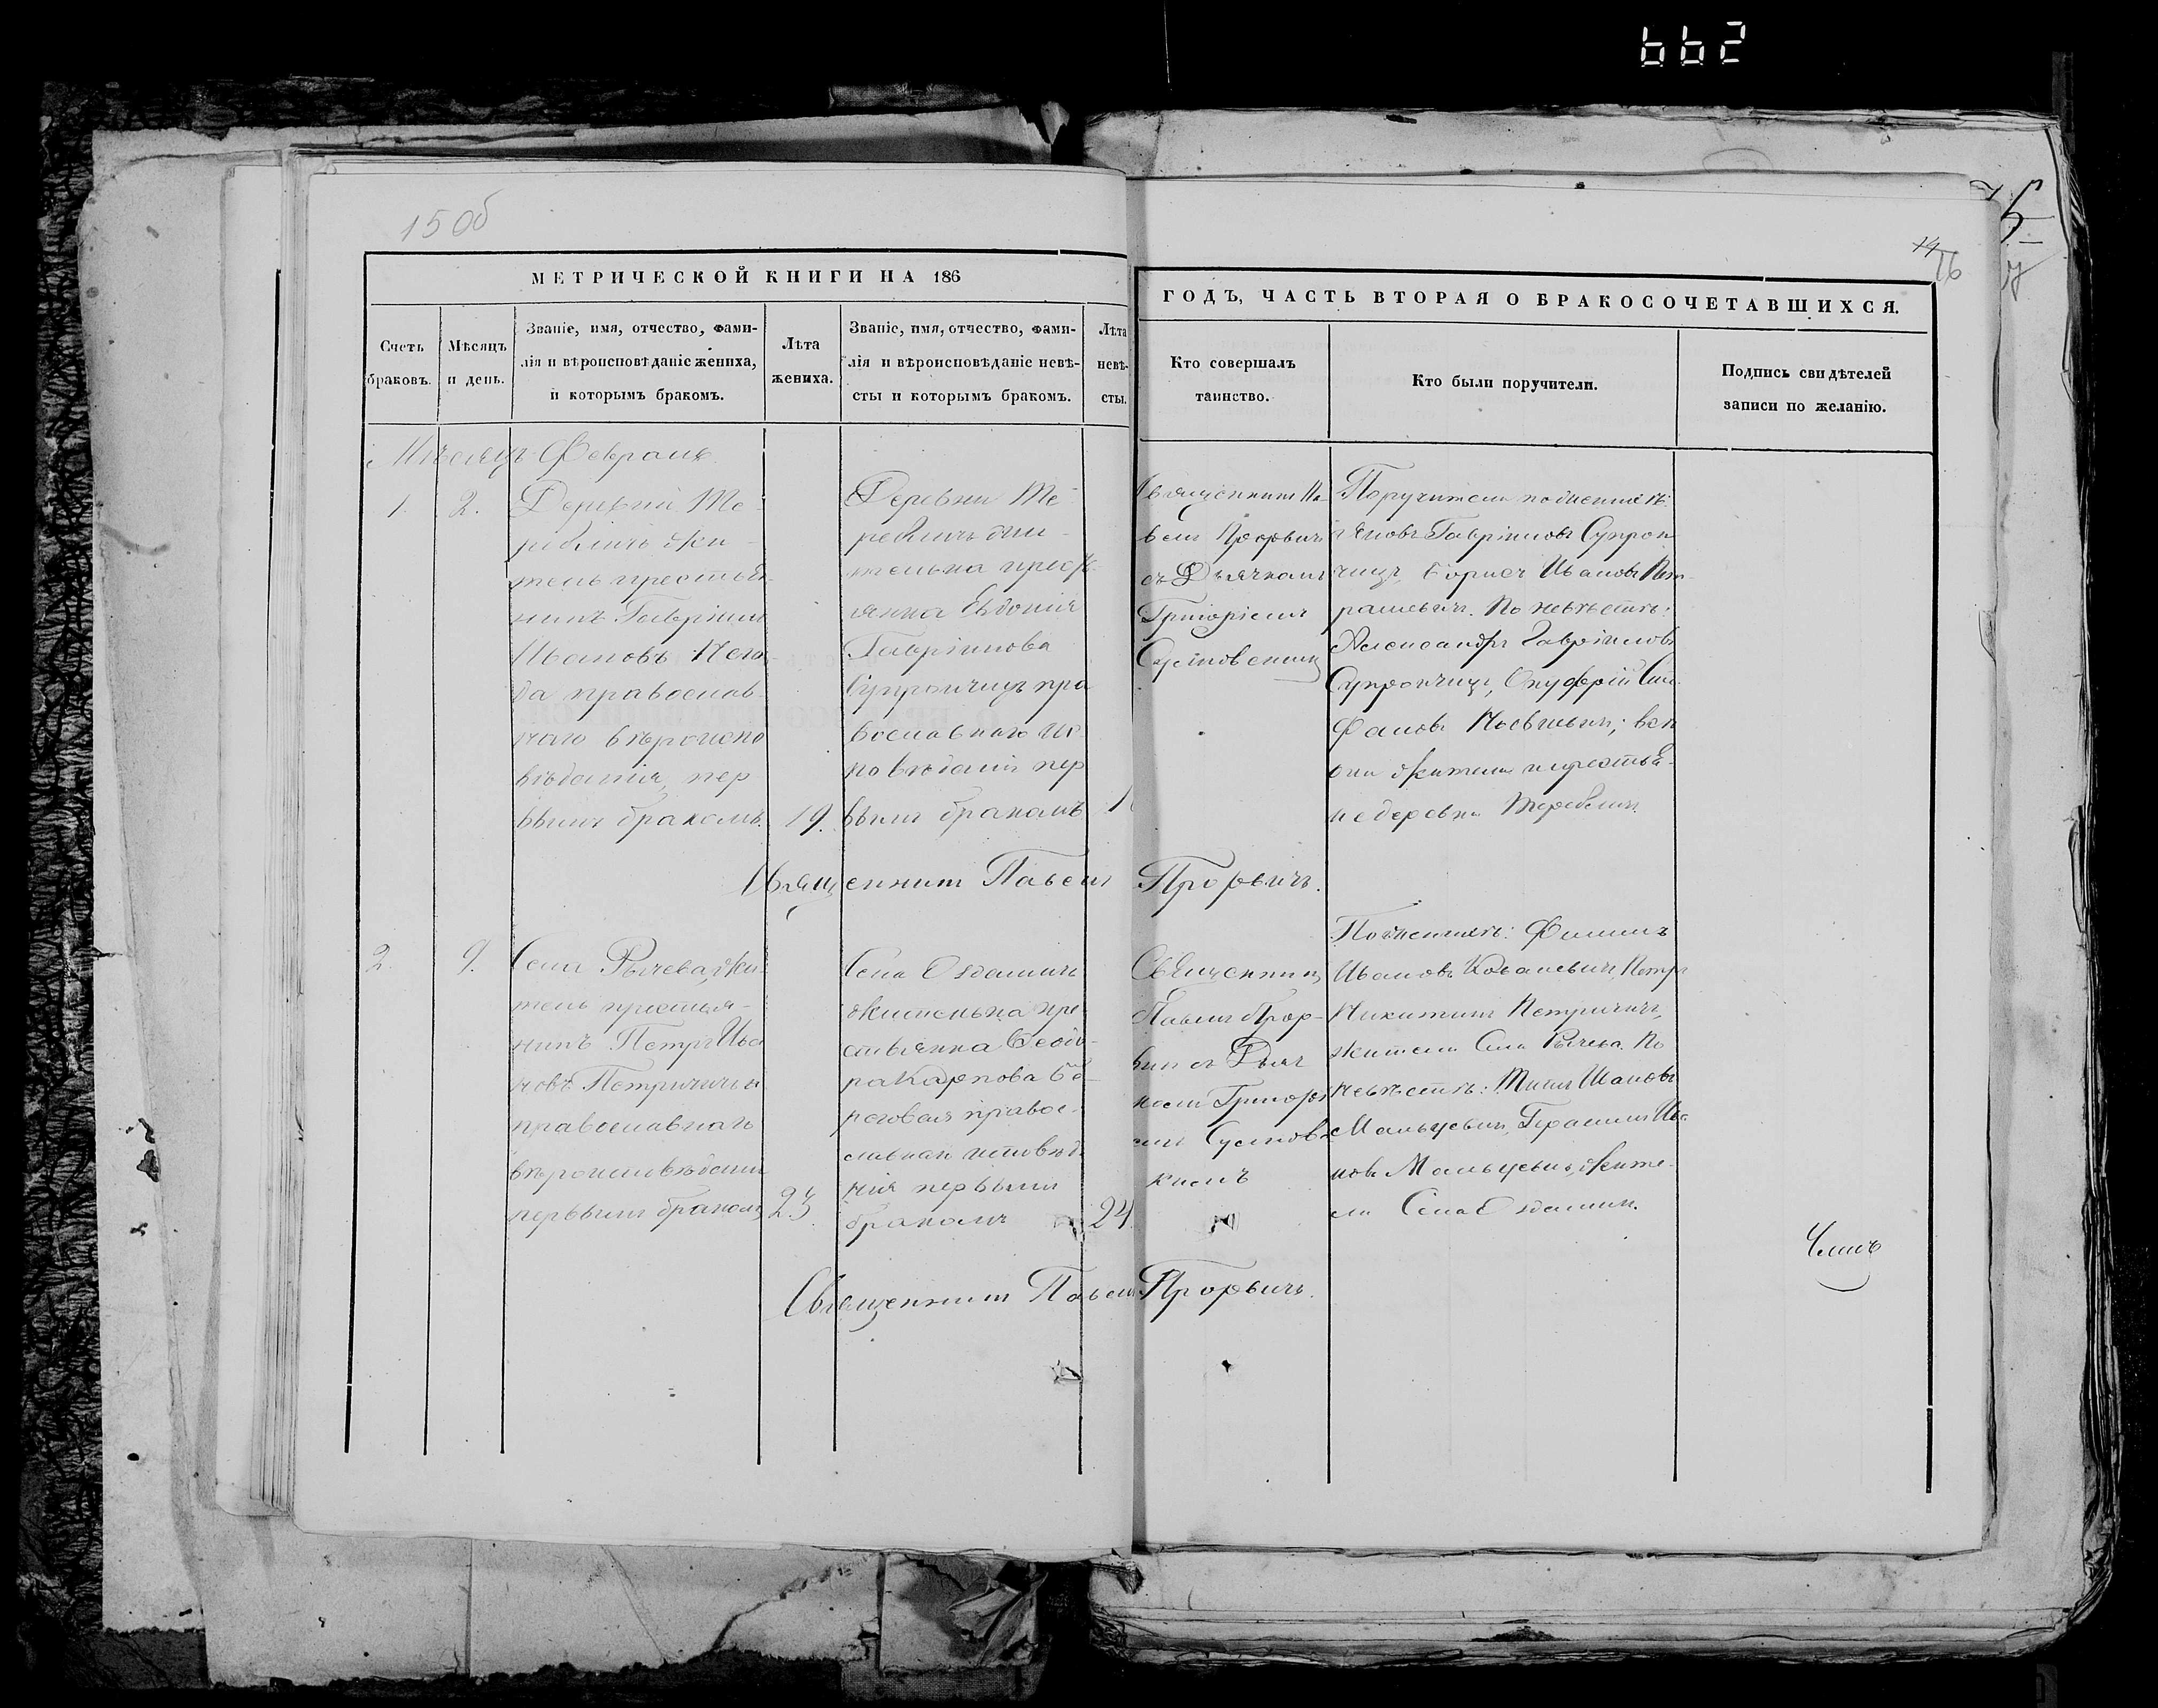 662
15 об
14
16
МЕТРИЧЕСКОЙ КНИГИ НА 186
ГОДЪ, ЧАСТЬ ВТОРАЯ О БРАКОСОЧЕТАВШИХСЯ.
Счетъ
браковъ.
Мѣсяцъ
и день.
Званіе, имя, отчество, фами-
лія и вѣроисповѣданіе жениха,
и которымъ бракомъ.
Лѣта
жениха.
Званіе, имя, отчество, фами-
лія и вѣроисповѣданіе невѣ-
сты и которымъ бракомъ.
Лѣта
невѣ-
сты.
Кто совершалъ
таинство.
Кто были поручители.
Подпись свидѣтелей
записи по желанію.
Мѣсяцъ Февраль
1.
2.
Деревни Те-
ребличъ жи-
тель крестья-
нинъ Гавріилъ
Ивановъ
да православ
наго вѣроиспо
вѣданія, пер
вымъ бракомъ.
19.
Деревни Те
ребличъ жи-
телька крест
янка Евдокія
Гавріилова
Супрончицъ пра
вославнаго ис
повѣданія пер
вымъ бракомъ
Священникъ Па-
велъ Проровичъ
съ Дьячкомъ
Григоріемъ
Поручители по женихѣ:
Яковъ Гавріиловъ Супрон
чицъ, Борисъ Ивановъ Пет
рашевичъ. По невѣстѣ:
Александръ Гавріиловъ
Супрончицъ, Онуфрій
всѣ
они жители крестья-
не деревни Теребличъ.
Священникъ Павелъ Проровичъ.
2.
9.
Села Рычева, жи
тель крестья-
нинъ Петръ Ива
новъ Петричичъ
православнаго
вѣроисповѣданія
первымъ бракомъ
23.
Села Оздамичъ
жителька кре-
стьянка Ѳеодо-
ра Карпова
правос-
лавнаго исповѣда
нія первымъ
бракомъ
24.
Священникъ
Павелъ Прор-
вичъ съ Дьяч
комъ Григорі
емъ
По женихѣ: Филипъ
Ивановъ Ковалевичъ, Петръ
Никитинъ Петричичъ,
жители Села Рычева. По
невѣстѣ: Ивановъ
Мальцевичъ, Герасимъ Ива
новъ Мальцевичъ, жите-
ли Села Оздамичъ.
Священникъ Павелъ Проровичъ.